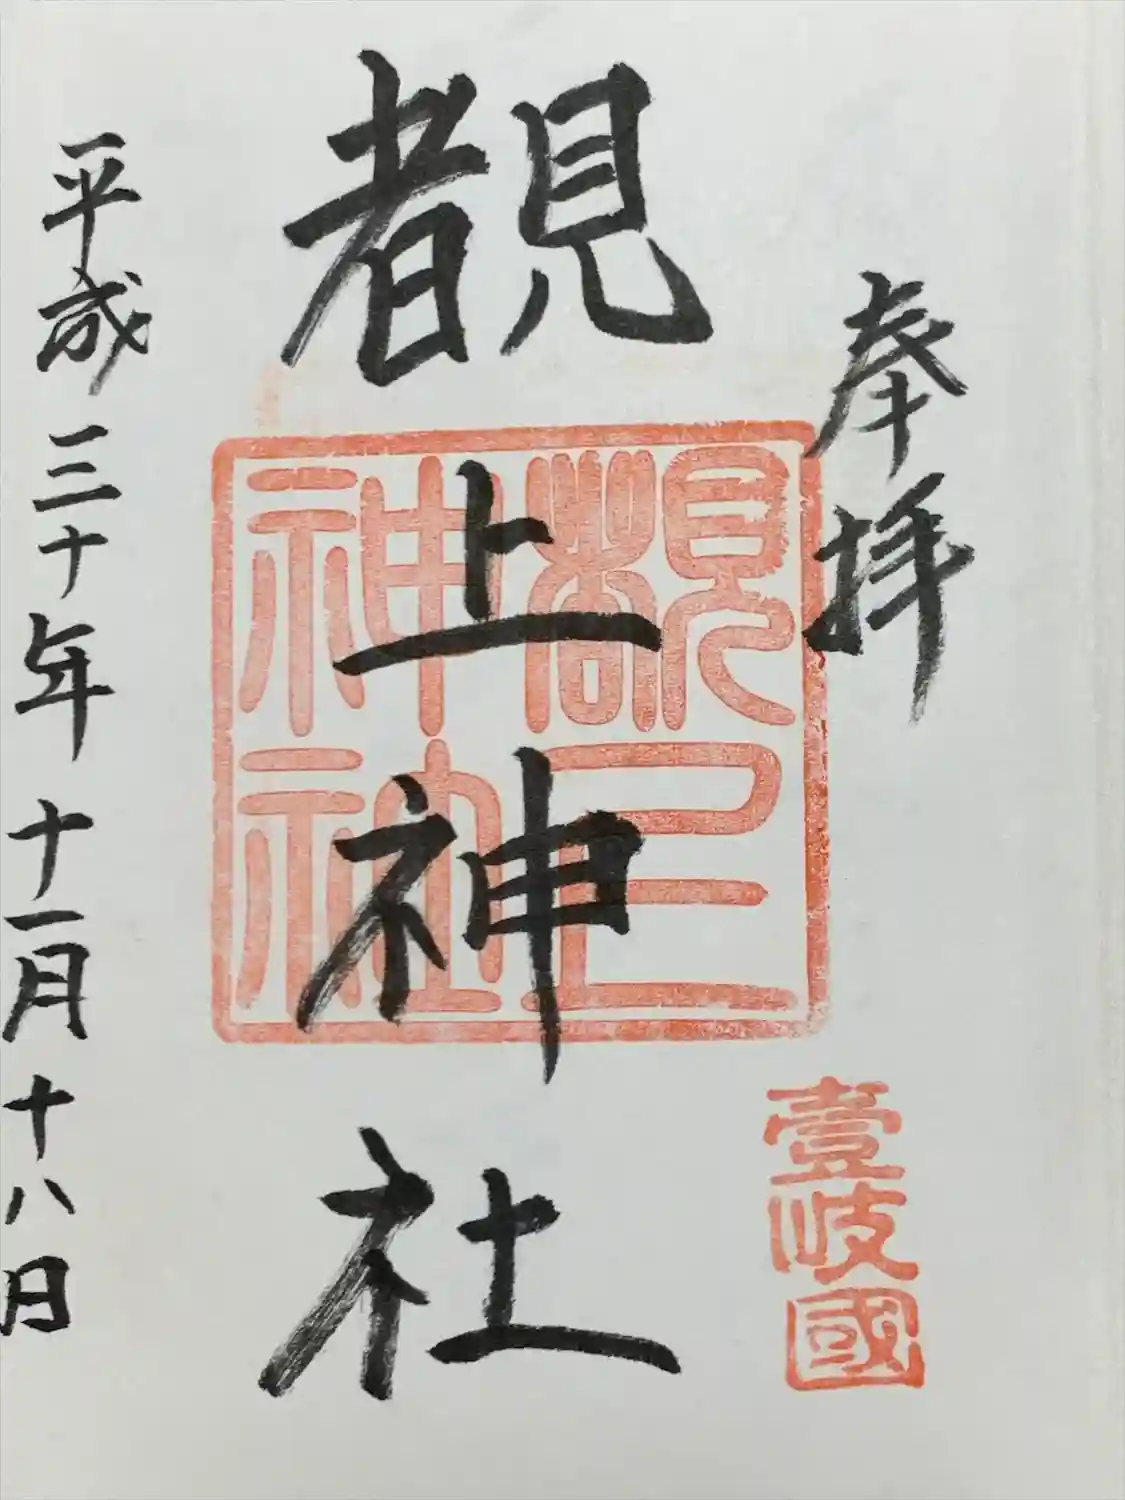 奉拝
壹岐國
覩上神社
覩
神社
平成三十年十一月十八日